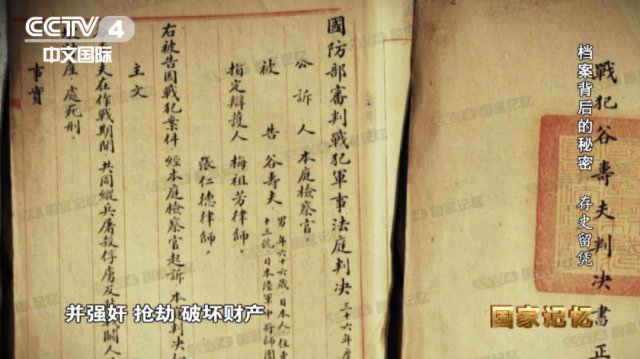 CCTV 4
中文国际
戰犯谷壽夫判决書正
档案背后的秘密 存史留凭
國防部審判戰犯軍事法庭判决
三十六年度
公訴人 本庭檢察官
被告 谷壽夫
男年六十六歲日本人住東
十三號日本陸軍中將師團
指定辯護人 梅祖芳律師
張仁德律師
右被告因戰犯案件經本庭檢察官起訴本庭判决如
主文
夫在作戰期間共同縱兵屠殺俘虜及非戰鬪人
處死刑
事實
并强奸 抢劫 破坏财产
国家记忆